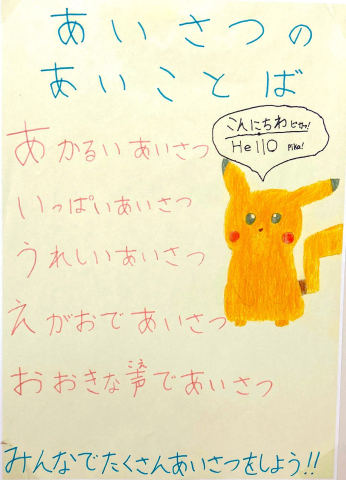 あいさつの
あいことば
こんにちわ ピカ!
Hello Pika!
あかるいあいさつ
いっぱいあいさつ
うれしいあいさつ
えがおであいさつ
おおきな声であいさつ
こえ
みんなでたくさんあいさつをしよう!!